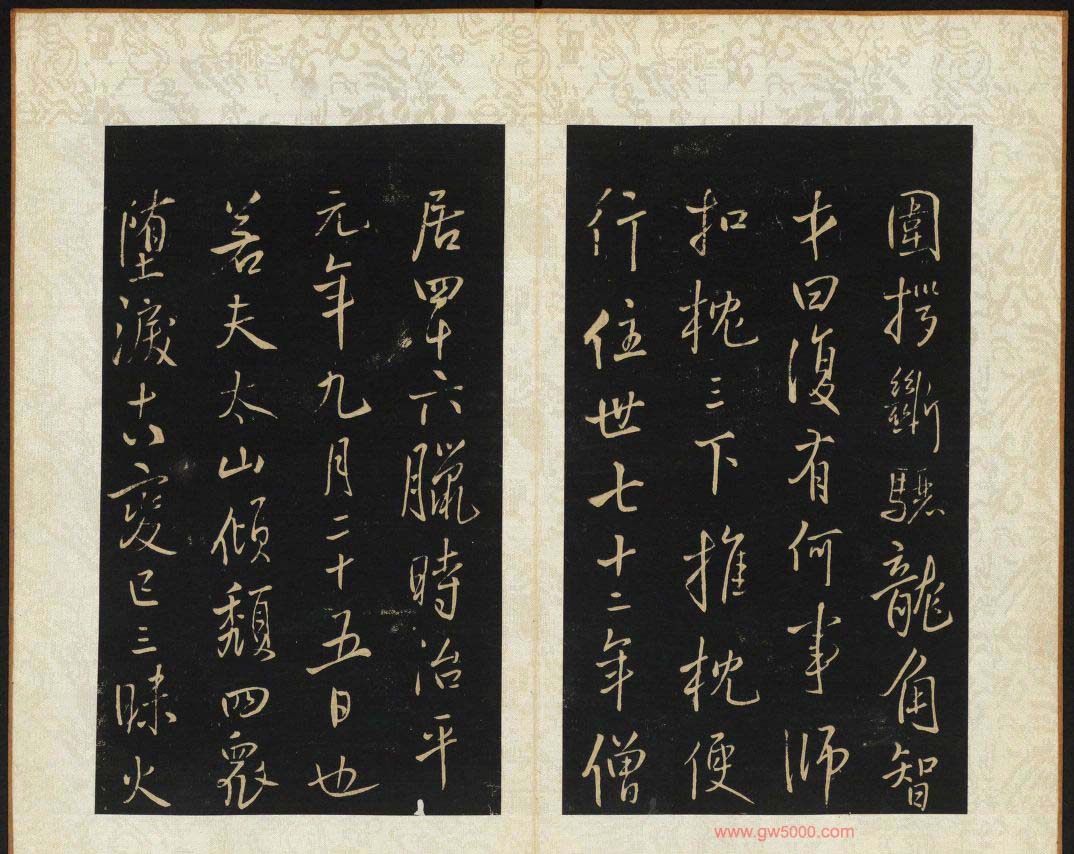 圍拶斷驪龍角智
才曰復有何事師
扣枕三下推枕便
行住世七十二年僧
居四十六臘時治平
元年九月二十五日也
若夫太山傾頹四衆
墮淚十八變已三昧火
www.gw5000.com